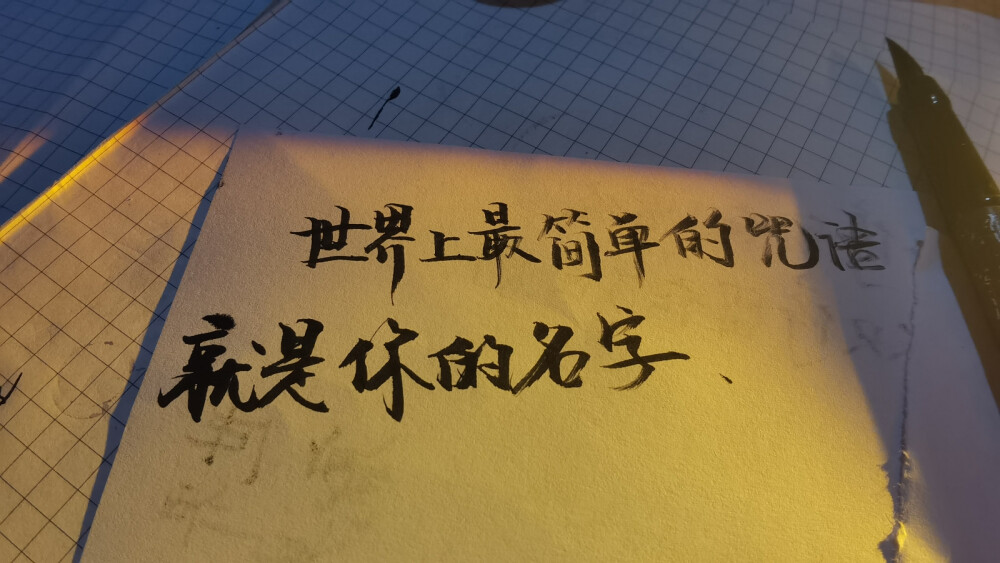 世界上最简单的咒语
就是你的名字、